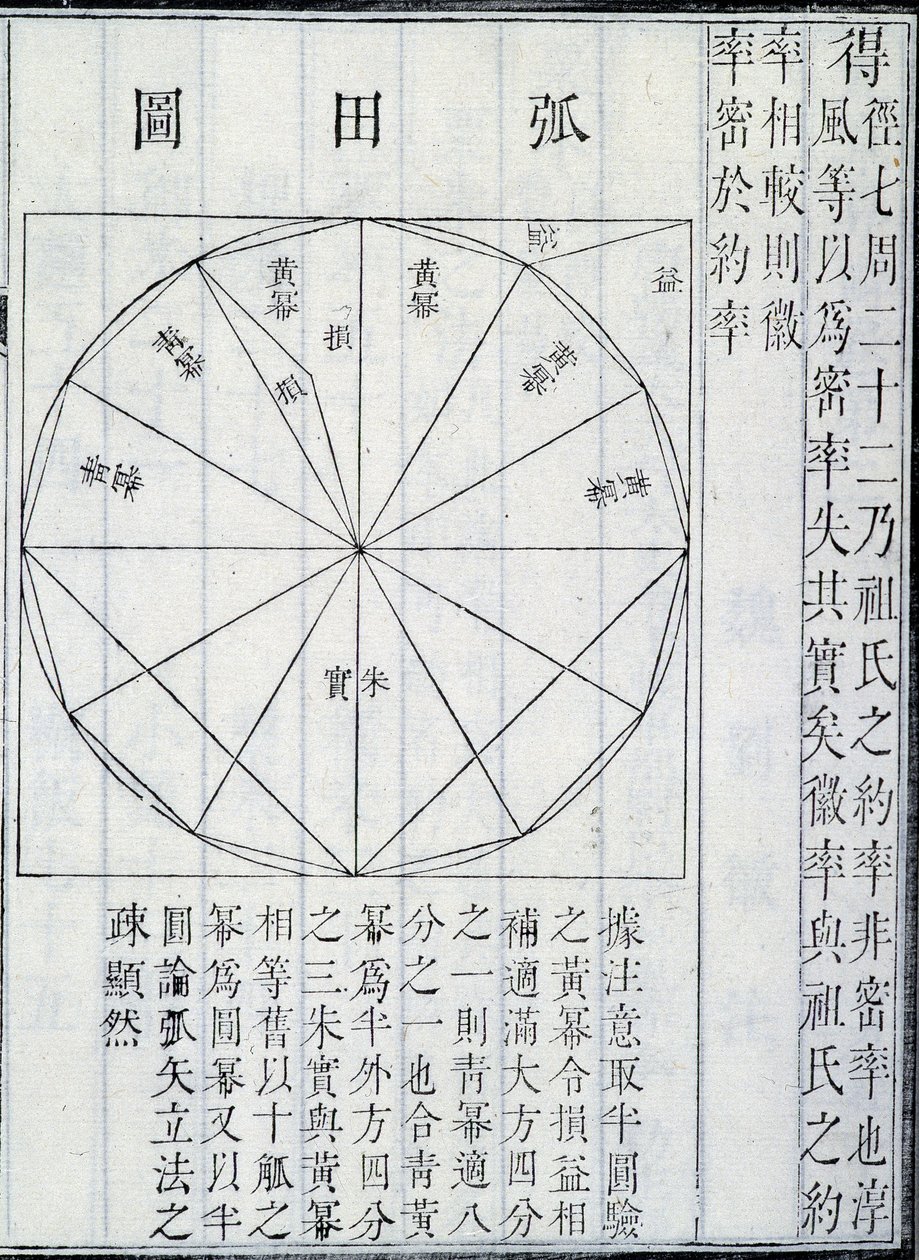 得
徑七周二十二乃祖氏之約率非密率也淳
風等以爲密率失其實矣徽率與祖氏之約
率相較則徽
率密於約率
弧田圖
益
益
黃冪
黃冪
黃冪
黃冪
損
損
青冪
青冪
朱實
據注意取半圓驗
之黃冪令損益相
補適滿大方四分
之一則青冪適八
分之一也合青黃
冪爲半外方四分
之三朱實與黃冪
相等舊以十觚之
冪爲圓冪又以半
圓論弧矢立法之
疎顯然